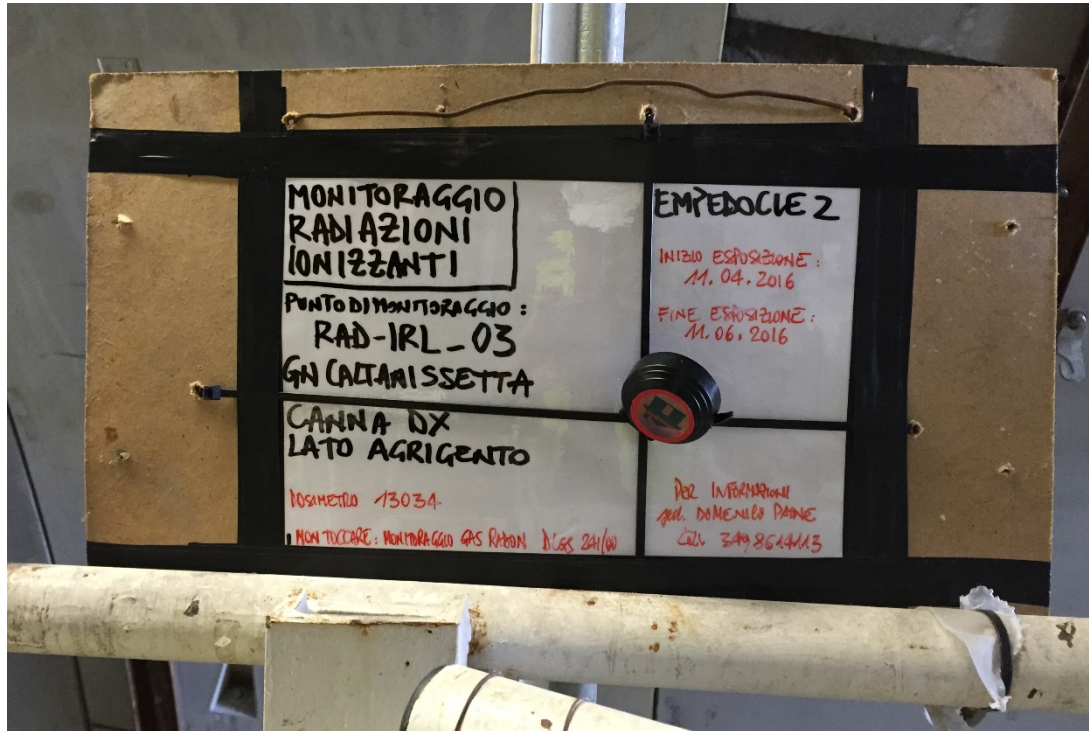 MONITORAGGIO
RADIAZIONI
IONIZZANTI
PUNTO DI MONITORAGGIO :
RAD-IRL_03
GN CALTANISSETTA
CANNA DX
LATO AGRIGENTO
DOSIMETRO 13034
NON TOCCARE: MONITORAGGIO GAS RADON D.LGS 241/00
EMPEDOCLE 2
INIZIO ESPOSIZIONE :
11.04.2016
FINE ESPOSIZIONE :
11.06.2016
PER INFORMAZIONI
DOMENICO